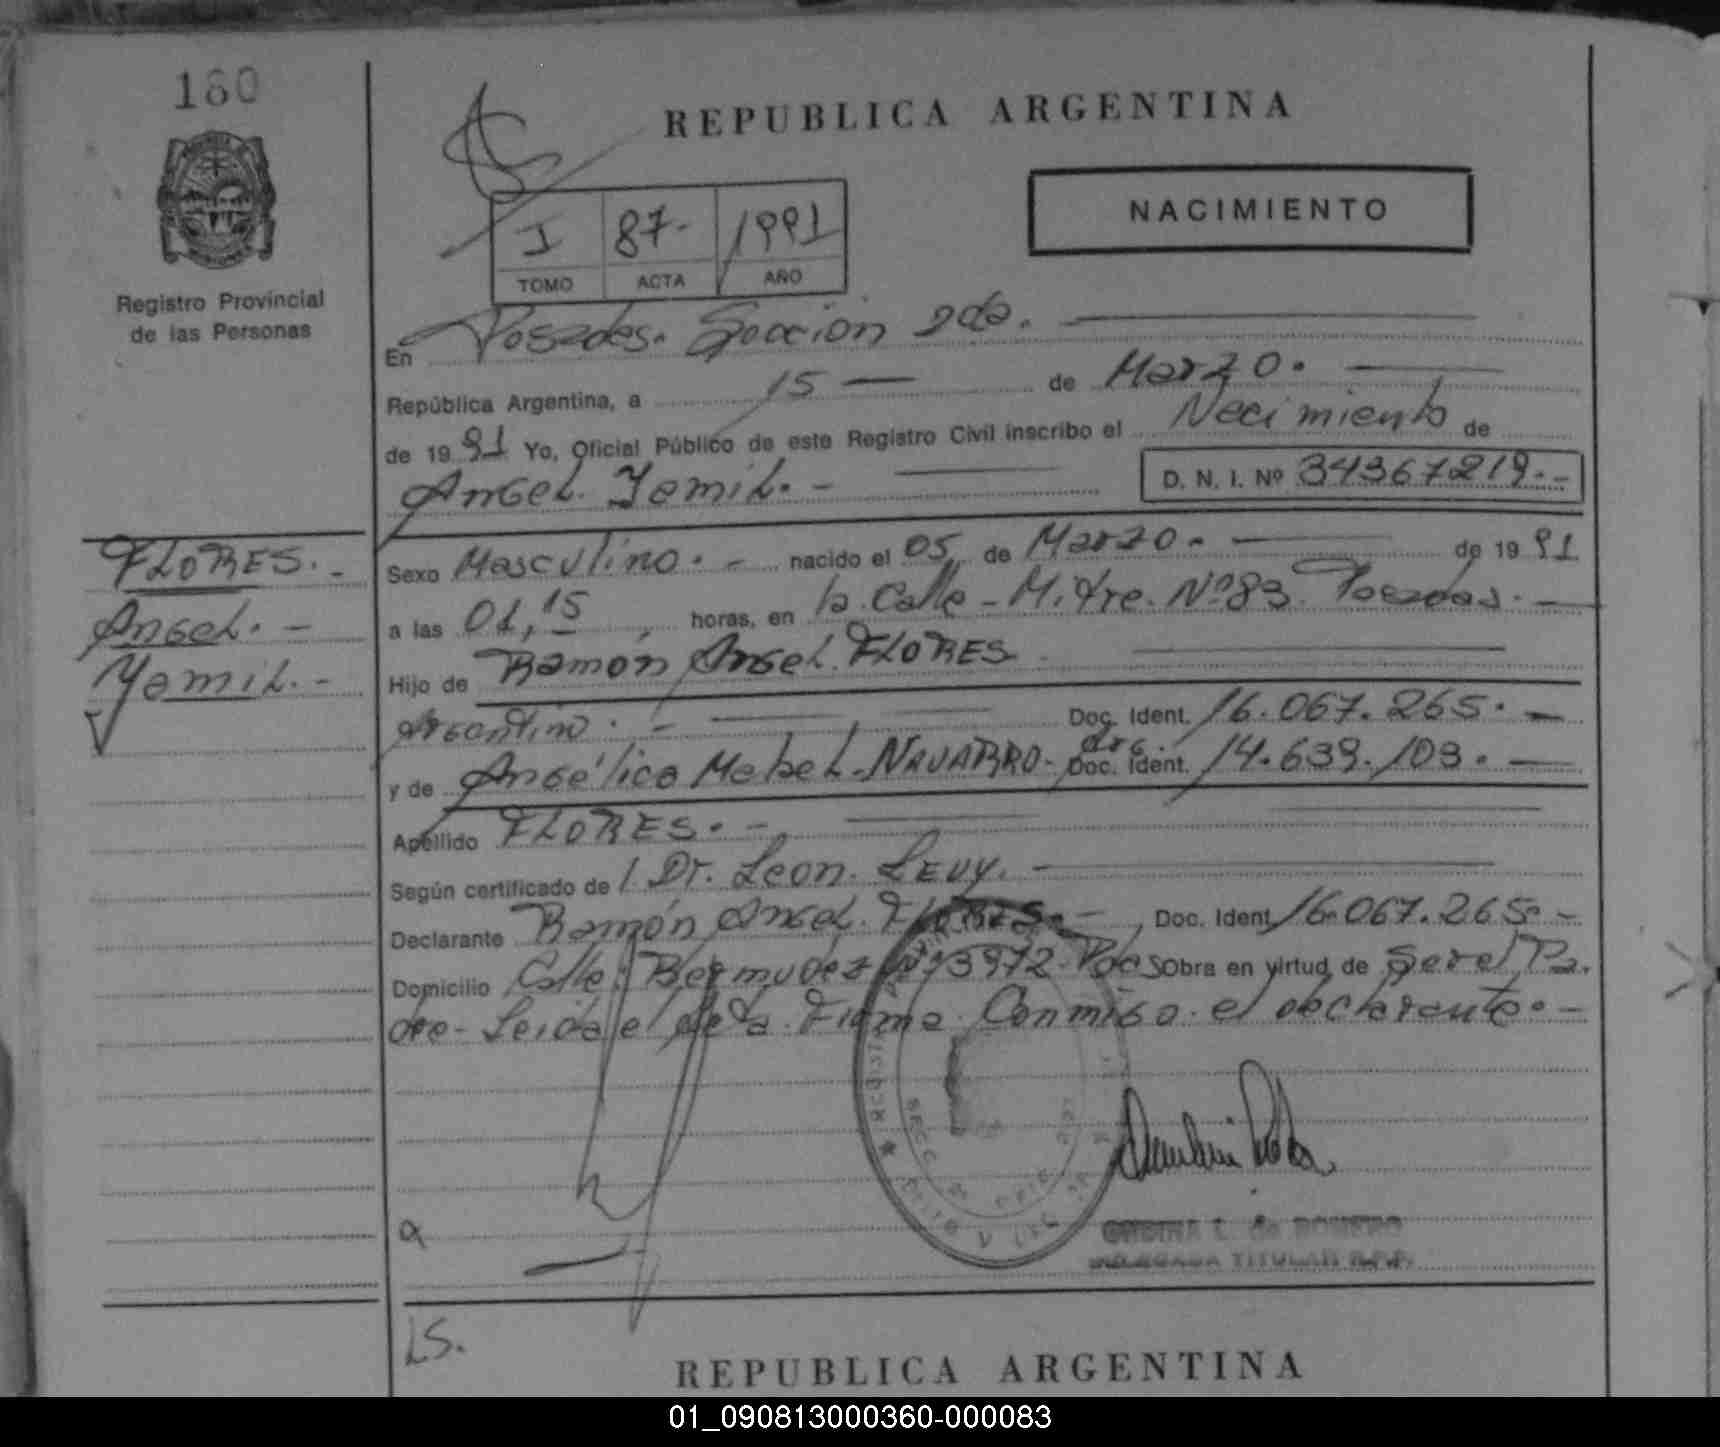 180
REPUBLICA ARGENTINA
NACIMIENTO
I 87- 1991
TOMO ACTA AÑO
Registro Provincial
de las Personas
En Posadas. Sección 2da.
República Argentina, a 15 de Marzo.
de 1991 Yo, Oficial Público de este Registro Civil inscribo el Nacimiento de
Angel Yamil. - D. N. I. Nº 34367219.-
FLORES. -
Angel. -
Yamil. -
Sexo Masculino. - nacido el 05 de Marzo. - de 1991
a las 01,15 horas, en la Calle - Mitre. Nº 83. Posadas. -
Hijo de Ramón Angel. FLORES
Argentino. - Doc. Ident. 16.067.265. -
y de Angélica Mabel - NAVARRO - Arg. Doc. Ident. 14.639.103. -
Apellido FLORES. -
Según certificado de / Dr. Leon. LEVY. -
Declarante Ramón Angel. FLORES. - Doc. Ident. 16.067.265. -
Domicilio Calle: Bermudez Nº 3972 - Pdas obra en virtud de Ser el Pa.
dre - Leida el acta. Firma. Conmigo. el declarante. -
ONDINA L. de ROMERO
DELEGADA TITULAR R.P.P.
LS.
REPUBLICA ARGENTINA
01_090813000360-000083